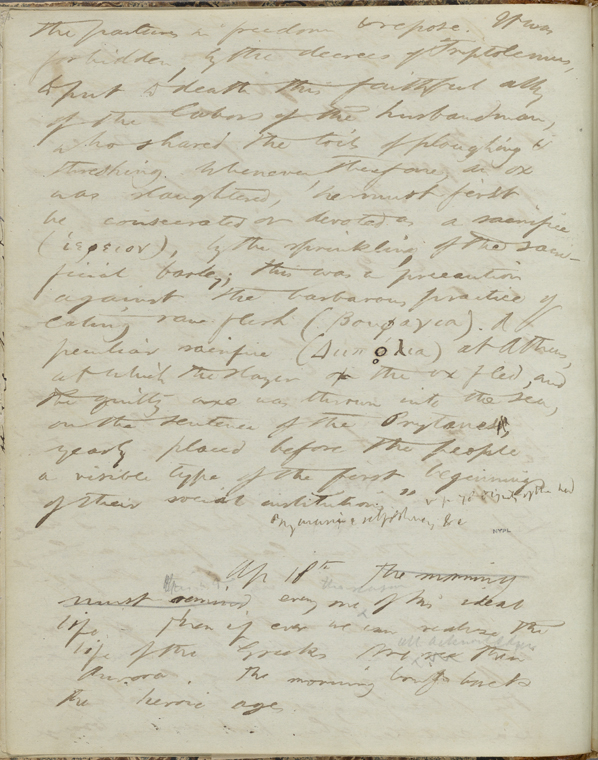 the pasture, in freedom & repose. It was
forbidden, by the decrees of Triptolemus,
to put to death this faithful ally
of the labors of the husbandman,
who shared the toils of ploughing &
threshing. Whenever, therefore, an ox
was slaughtered, he must first
be consecrated or devoted as a sacrifice
(ἱερειον), by the sprinkling of the sacri-
ficial barley; this was a precaution
against the barbarous practice of
eating raw flesh (Βουφαγια). A
peculiar sacrifice (Διιπολια) at Athens,
at which the slayer of the ox fled, and
the guilty axe was thrown into the sea,
on the sentence of the Prytanes,
yearly placed before the people
a visible type of the first beginnings
of their social institutions."

Ap 18th The morning
must remind every one of his ideal
life. Then if ever we can realize the
life of the Greeks
Aurora. The morning brings back
the heroic ages.